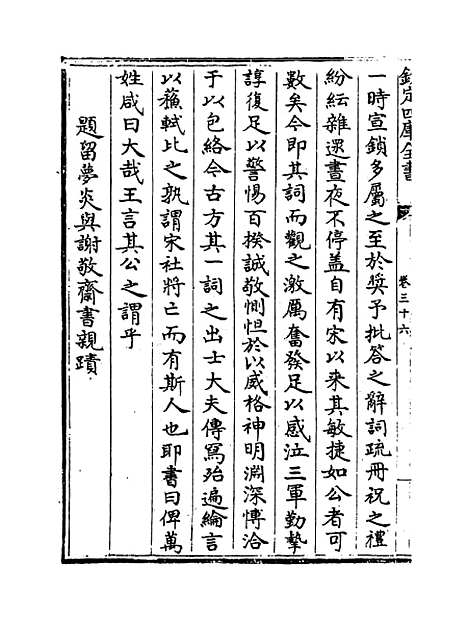 欽定四庫全書
卷三十六
一時宣鎖多屬之至於奬予批答之辭詞疏冊祝之禮
紛紜雜遝晝夜不停盖自有宋以來其敏捷如公者可
數矣今即其詞而觀之激厲奮發足以感泣三軍勤摯
諄復足以警惕百揆誠敬惻怛於以感格神明淵深愽洽
于以包絡今古方其一詞之出士大夫傳寫殆遍綸言
以蘇軾比之孰謂宋社將亡而有斯人也耶書曰俾萬
姓咸曰大哉王言其公之謂乎
題留夢炎與謝敬齋書親蹟